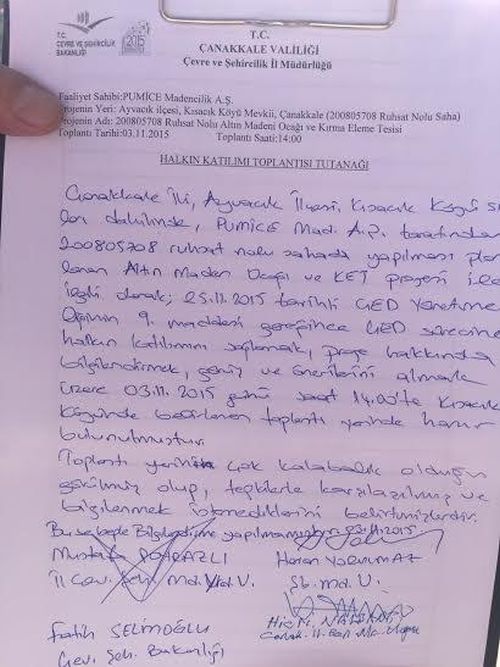 T.C.
ÇEVRE VE ŞEHİRCİLİK
BAKANLIĞI
2015
T.C.
ÇANAKKALE VALİLİĞİ
Çevre ve Şehircilik İl Müdürlüğü
Faaliyet Sahibi:PUMİCE Madencilik A.Ş.
Projenin Yeri: Ayvacık ilçesi, Kısacık Köyü Mevkii, Çanakkale (200805708 Ruhsat Nolu Saha)
Projenin Adı: 200805708 Ruhsat Nolu Altın Madeni Ocağı ve Kırma Eleme Tesisi
Toplantı Tarihi:03.11.2015 Toplantı Saati:14:00
HALKIN KATILIMI TOPLANTISI TUTANAĞI
Çanakkale İli, Ayvacık İlçesi, Kısacık Köyü sı
ları dahilinde, PUMİCE Mad. A.Ş. tarafından
200805708 ruhsat nolu sahada yapılması plan
lanan Altın Maden Ocağı ve KET projesi ile
ilgili olarak; 25.11.2015 tarihli ÇED Yönetme
liğinin 9. maddesi gereğince ÇED sürecine
halkın katılımını sağlamak, proje hakkında
bilgilendirmek, görüş ve önerilerini almak
üzere 03.11.2015 günü saat 14.00'te Kısacık
Köyünde belirlenen toplantı yerinde hazır
bulunulmuştur.
Toplantı yerinin çok kalabalık olduğu
görülmüş olup, tepkilerle karşılaşılmış ve
bilgilenmek istemediklerini belirtmişlerdir.
Bu sebeple Bilgilendirme yapılmamıştır. 03.11.2015
Mustafa Hasan
İl Çev. Şeh. Md. Yrd. V. Şb. Md. V.
Fatih SELİMOĞLU
Çev. Şeh. Bakanlığı